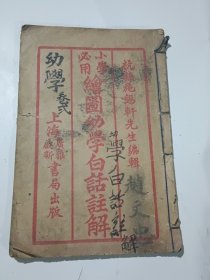 杭縣施錫軒先生編輯
小學
必用
繪圖幼學白話註解
上海
書局出版
幼學
學白話註解
趙文